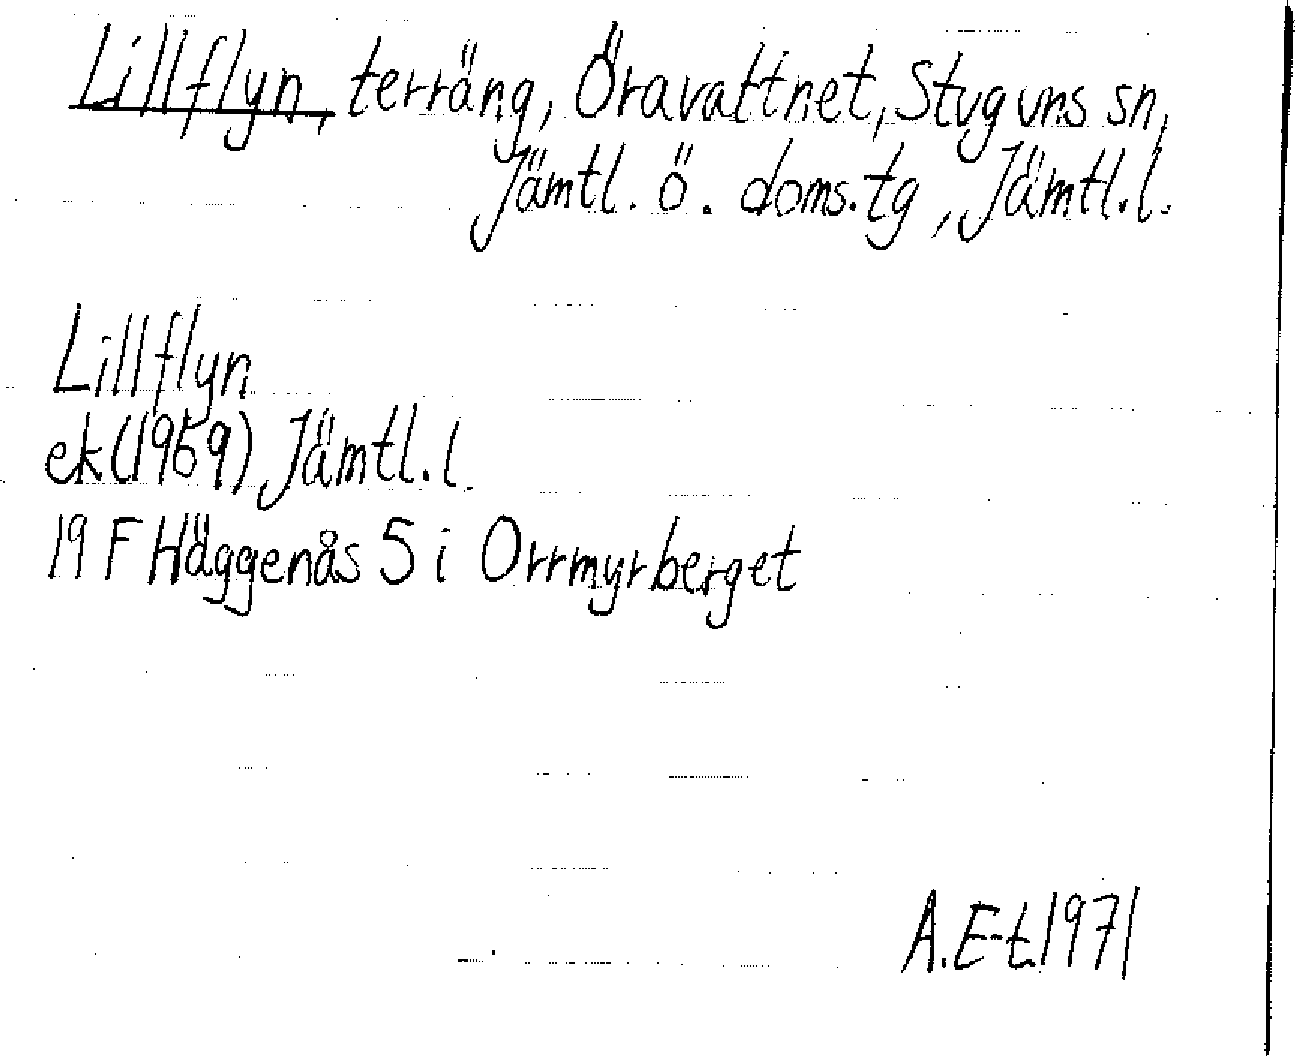 Lillflyn, terräng, Öravattnet, Stuguns sn,
Jämtl. ö. doms.tg, Jämtl.l.
Lillflyn
ek(1969) Jämtl.l.
19 F Häggenås 5 i Orrmyrberget
A.E-t.1971